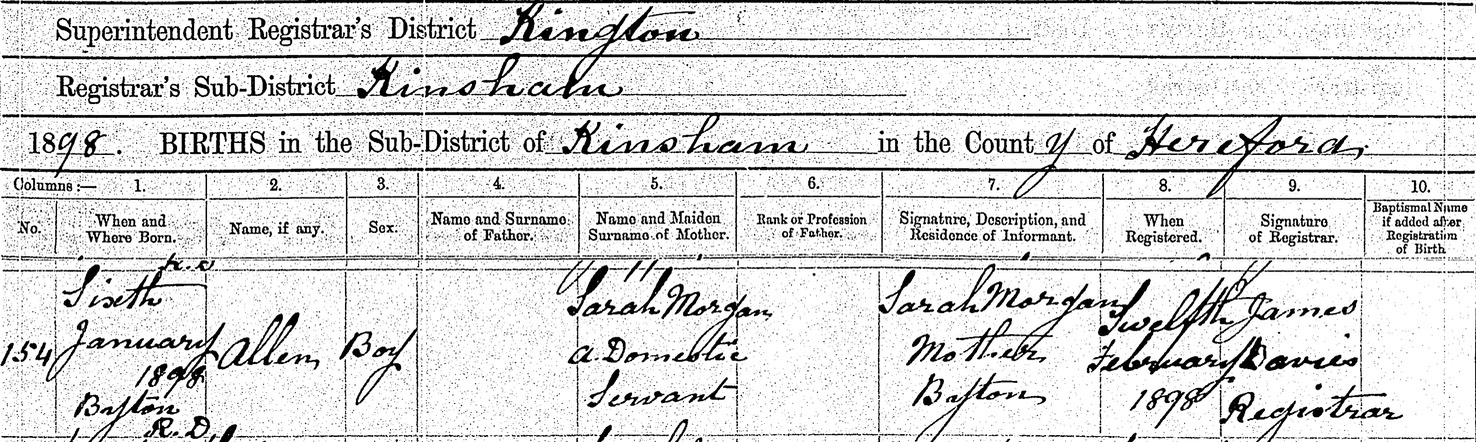 Superintendent Registrar's District Kington
Registrar's Sub-District Kinsham
1898. BIRTHS in the Sub-District of Kinsham in the County of Hereford
Columns :— 1. 2. 3. 4. 5. 6. 7. 8. 9. 10.
No. When and Where Born. Name, if any. Sex. Name and Surname of Father. Name and Maiden Surname of Mother. Rank or Profession of Father. Signature, Description, and Residence of Informant. When Registered. Signature of Registrar. Baptismal Name if added after Registration of Birth
Sixth Sarah Morgan Sarah Morgan Twelfth James
154 January Allen Boy a Domestic Mother February Davies
1898 Servant Byton 1898 Registrar
Byton
R.D.